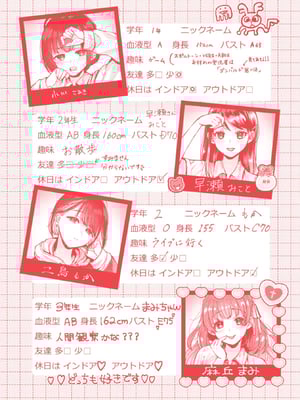 学年 1年 ニックネーム
血液型 A 身長 152cm バスト A65
趣味 ゲーム
友達 多□ 少☑
休日は インドア☑ アウトドア□
学年 2年生 ニックネーム 早瀬さん みこと
血液型 AB 身長 160cm バスト E70
趣味 お散歩
友達 多□ 少□ すみません 分からないです…
休日は インドア□ アウトドア☑
早瀬 みこと
学年 2 ニックネーム もか
血液型 O 身長 155 バスト C70
趣味 ライブに行く
友達 多☑ 少□
休日は インドア□ アウトドア☑
もか
学年 3年生 ニックネーム まみちゃん
血液型 AB 身長 162cm バスト E75
趣味 人間観察かな???
友達 多□ 少□
休日は インドア♡ アウトドア♡
♡♡どっちも好きです♡♡
麻丘 まみ